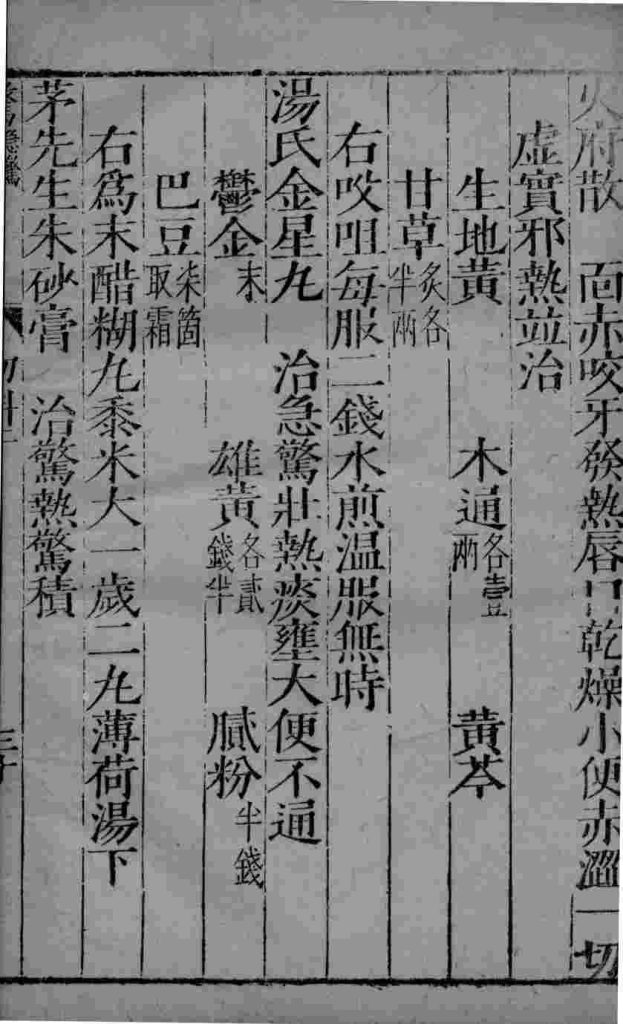 火府散　面赤咬牙發熱唇口乾燥小便赤澀一切
虛實邪熱並治
生地黃　木通各壹兩　黃芩
甘草炙各半兩
右㕮咀每服二錢水煎溫服無時
湯氏金星丸　治急驚壯熱痰壅大便不通
鬱金末　雄黃各貳錢半　膩粉半錢
巴豆柒箇取霜
右爲末醋糊丸黍米大一歲二丸薄荷湯下
茅先生朱砂膏　治驚熱驚積